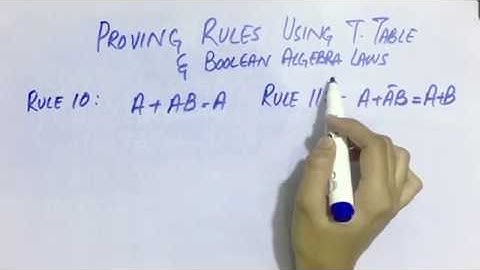 PROVING RULES USING T. TABLE
& BOOLEAN ALGEBRA LAWS
RULE 10: A + AB = A RULE 11 - A + ĀB = A + B